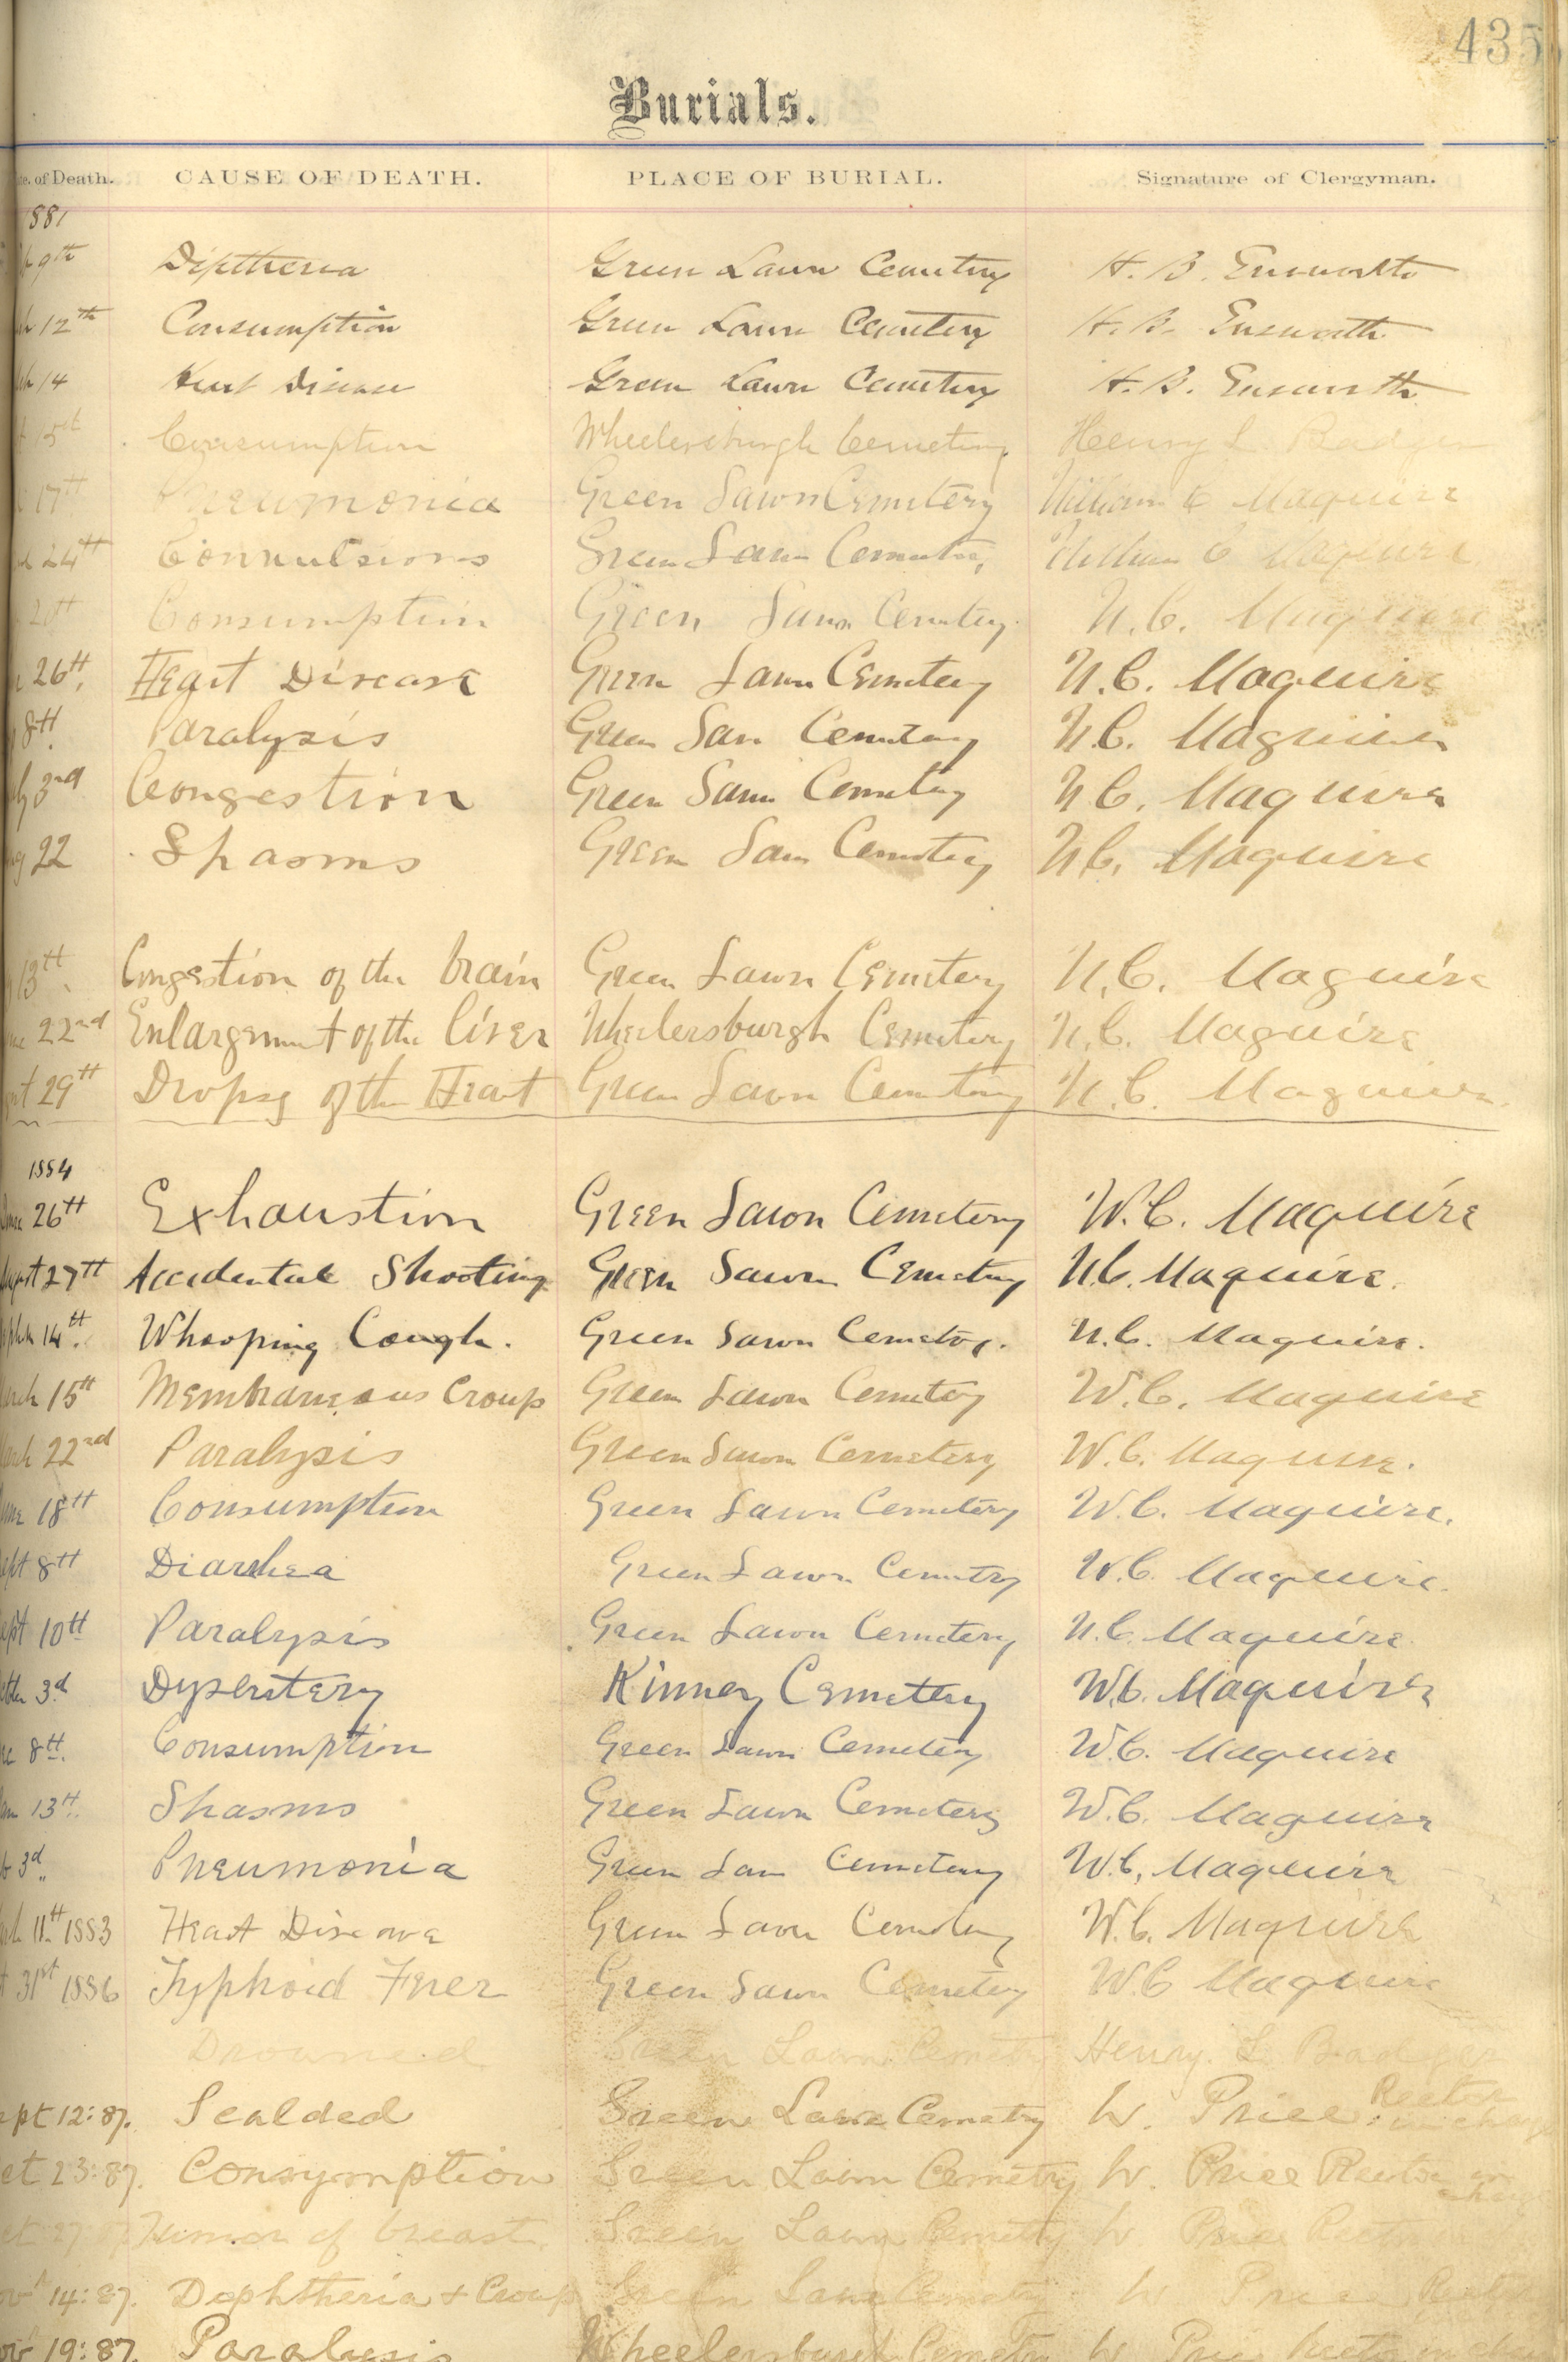 435
Burials.
of Death. CAUSE OF DEATH. PLACE OF BURIAL. Signature of Clergyman.
881
9th Diptheria Green Lawn Cemetery H. B. Ensworth
12th Consumption Green Lawn Cemetery H. B. Ensworth
14 Heart Disease Green Lawn Cemetery H. B. Ensworth
Consumption Wheelersburgh Cemetery Henry L. Badger
17th Pneumonia Green Lawn Cemetery William C Maguire
24th Convulsions Green Lawn Cemetery William C Maguire
Consumption Green Lawn Cemetery W.C. Maguire
26th Heart Disease Green Lawn Cemetery W.C. Maguire
8th Paralysis Green Lawn Cemetery W.C. Maguire
3rd Congestion Green Lawn Cemetery W C. Maguire
22 Spasms Green Lawn Cemetery W C. Maguire
13th Congestion of the brain Green Lawn Cemetery W.C. Maguire
22nd Enlargement of the liver Wheelersburgh Cemetery W.C. Maguire
29th Dropsy of the Heart Green Lawn Cemetery W.C. Maguire
1884
26th Exhaustion Green Lawn Cemetery W.C. Maguire
27th Accidental Shooting Green Lawn Cemetery W.C. Maguire.
14th Whooping Cough. Green Lawn Cemetery. W.C. Maguire.
15th Membraneous Croup Green Lawn Cemetery W.C. Maguire
22nd Paralysis Green Lawn Cemetery W.C. Maguire.
18th Consumption Green Lawn Cemetery W.C. Maguire.
Sept 8th Diarrhea Green Lawn Cemetry W.C. Maguire.
Sept 10th Paralysis Green Lawn Cemetery W.C. Maguire.
3d Dysentery Kinney Cemetery W.C. Maguire
8th. Consumption Green Lawn Cemetery W.C. Maguire
13th. Spasms Green Lawn Cemetery W.C. Maguire
3d Pneumonia Green Lawn Cemetery W.C. Maguire
11th 1883 Heart Disease Green Lawn Cemetery W.C. Maguire
31st 1886 Typhoid Fever Green Lawn Cemetery W C Maguire
Drowned Green Lawn Cemetery Henry L. Badger
Sept 12:87. Scalded Green Lawn Cemetry W. Price Rector in charge
23:87. Consymption Green Lawn Cemetry W. Price Rector in charge
Tumor of breast. Green Lawn Cemetry W. Price Rector
14:87. Dephtheria + Croup Green Lawn Cemetry W. Price Rector
19:87. Paralysis Wheelersburgh Cemetry W. Price Rector in charge